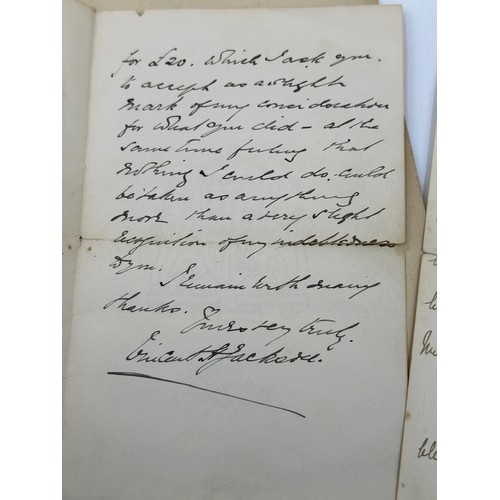 for £20. Which I ask you.
to accept as a slight
mark of my consideration
for what you did – at the
same time feeling that
nothing I could do. could
be taken as anything
more than a very slight
recognition of my indebtedness
to you.
I remain with many
thanks.
Yours very truly.
Vincent A Jackson.